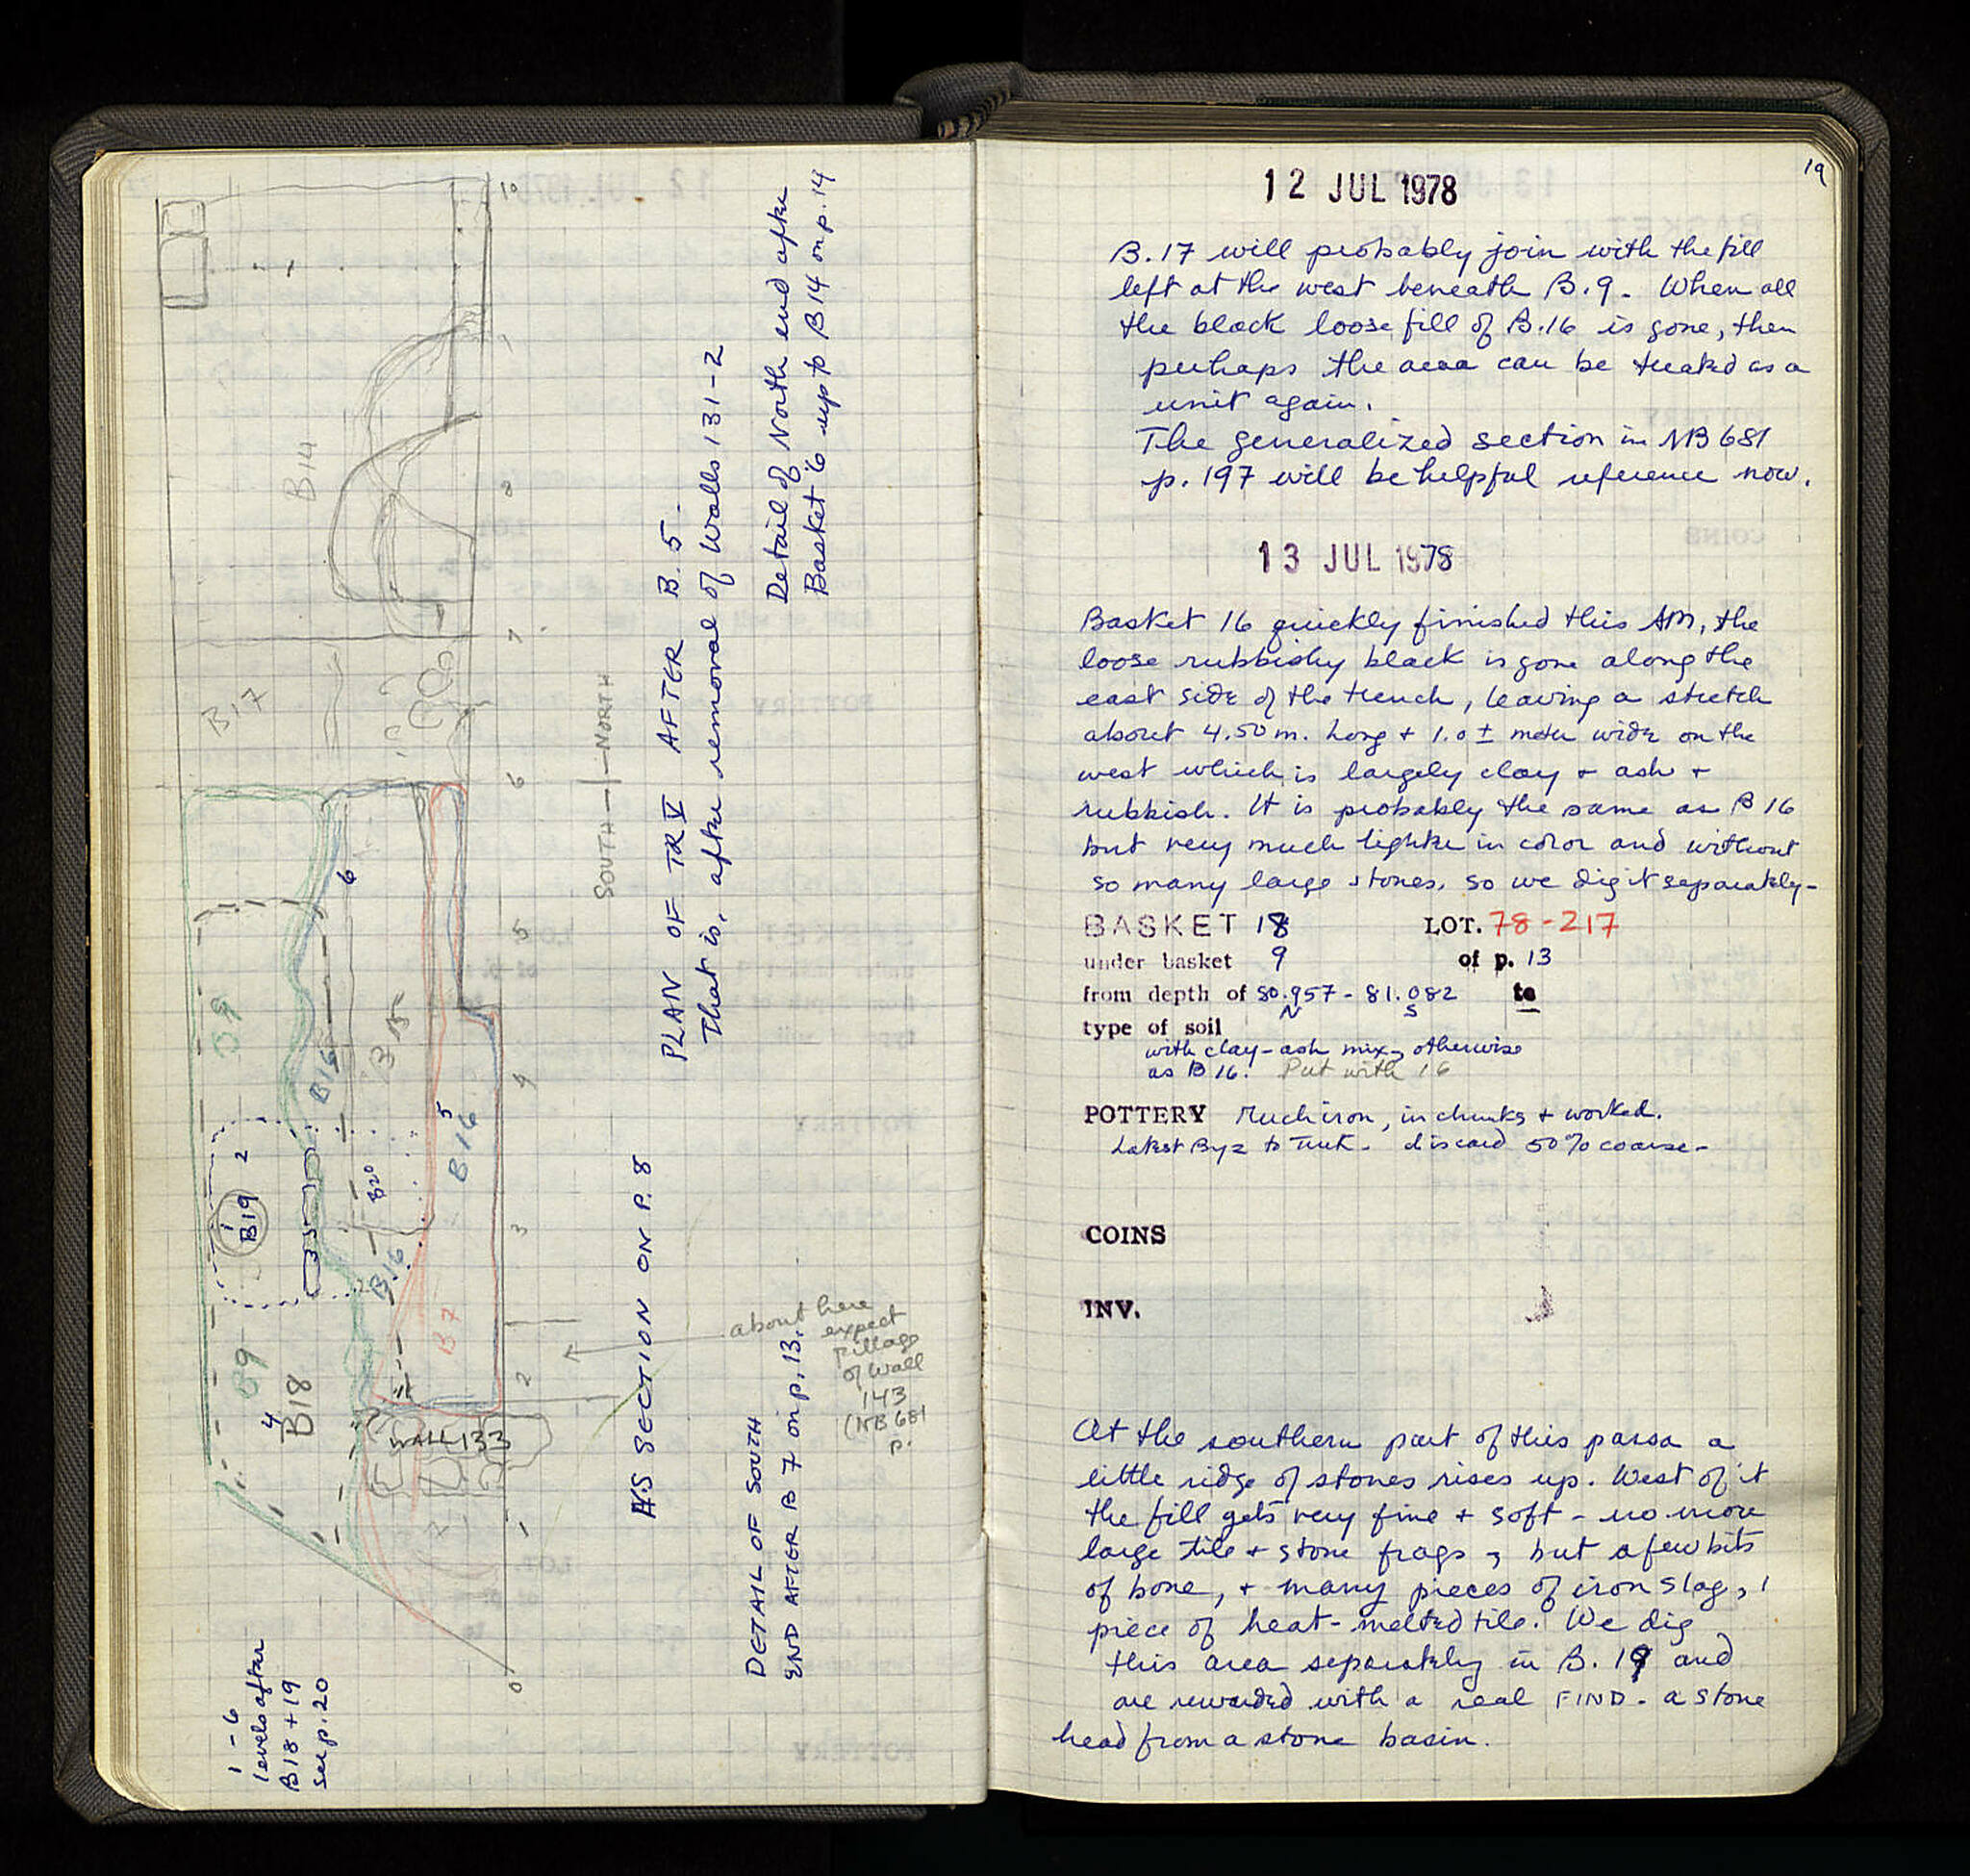 10
B14
8
7
B17
6
6
5
B9
B16
B15
4
5
B16
2
1
B19
B20
3
3
B16
B7
B9
4
B18
2
WALL 133
1
0
SOUTH — NORTH
PLAN OF TR V AFTER B. 5.
That is, after removal of Walls 131-2
Detail of North end after
Basket 6 up to B14 on p. 14
AS SECTION ON P. 8
DETAIL OF SOUTH
END AFTER B 7 on p. 13.
about here
expect
pillage
of wall
143
(NB 681
p.
1-6
levels after
B18 + 19
see p. 20
19
12 JUL 1978
B.17 will probably join with the fill
left at the west beneath B.9. When all
the black loose fill of B.16 is gone, then
perhaps the area can be treated as a
unit again.
The generalized section in NB 681
p. 197 will be helpful reference now.
13 JUL 1978
Basket 16 quickly finished this AM, the
loose rubbishy black is gone along the
east side of the trench, leaving a stretch
about 4.50 m. long + 1.0 ± meter wide on the
west which is largely clay + ash +
rubbish. It is probably the same as B 16
but very much lighter in color and without
so many large stones, so we dig it separately-
BASKET 18 LOT. 78-217
under basket 9 of p. 13
from depth of 80.957 - 81.082 to
N S
type of soil
with clay-ash mix, otherwise
as B 16. Put with 16
POTTERY Much iron, in chunks + worked.
Latest Byz to Turk. discard 50% coarse-
COINS
INV.
At the southern part of this passa a
little ridge of stones rises up. West of it
the fill gets very fine + soft - no more
large tile + stone frags, but a few bits
of bone, + many pieces of iron slag, 1
piece of heat-melted tile. We dig
this area separately in B. 19 and
are rewarded with a real FIND - a stone
head from a stone basin.